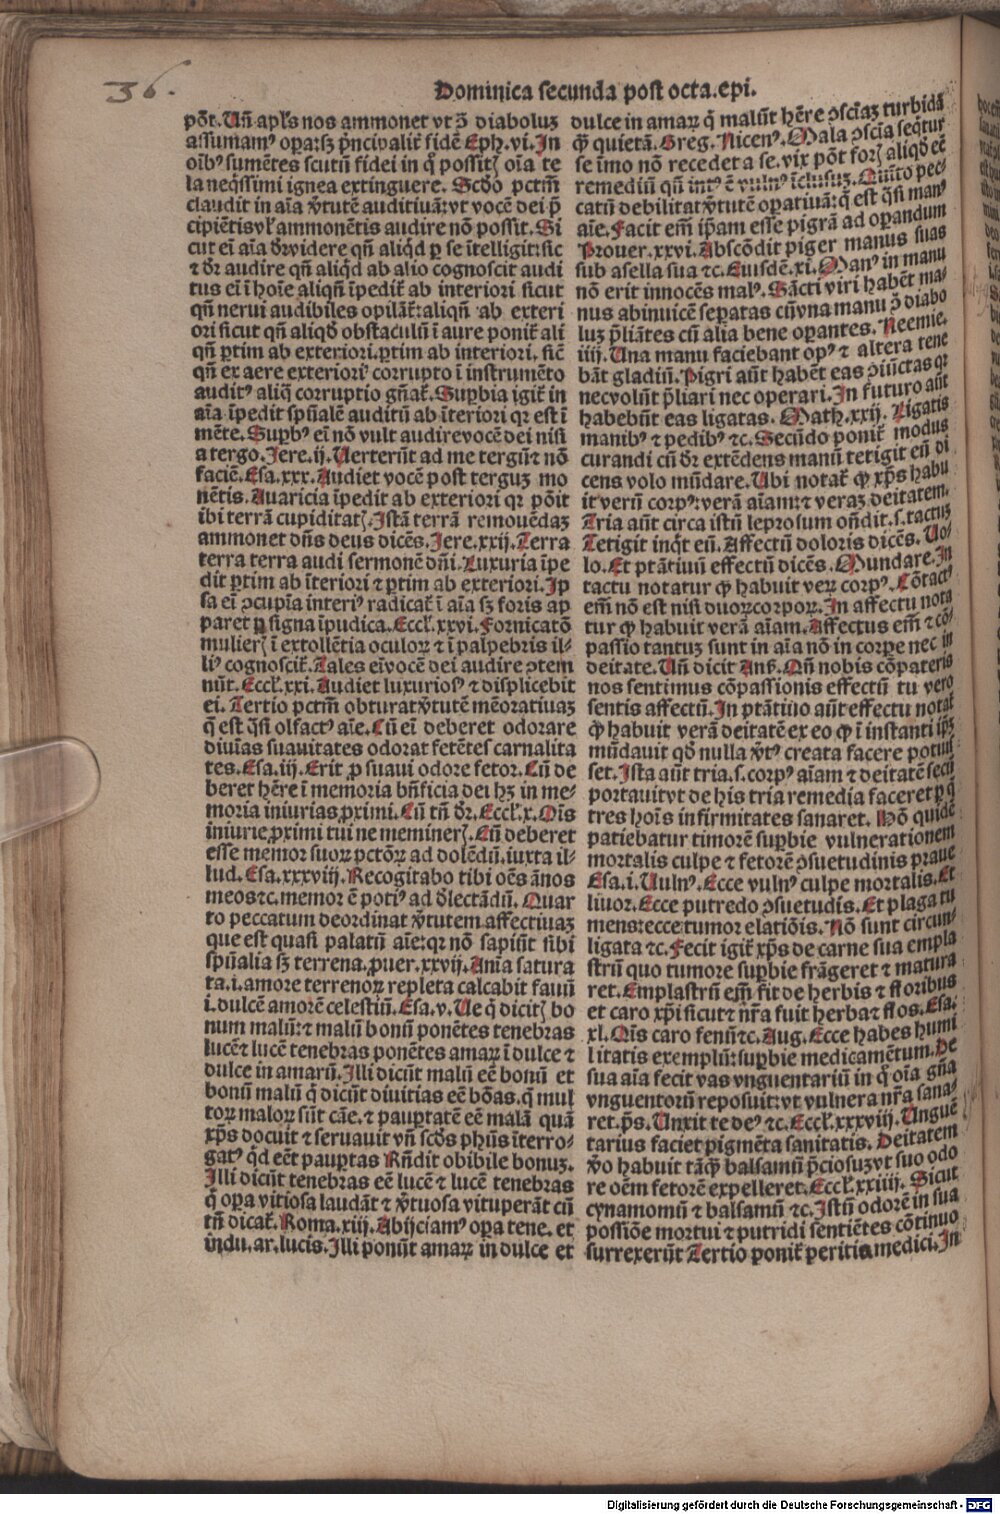 36.
Dominica secunda post octa.epi.
põt. Uñ apl's nos ammonet vt ɔ̃ diaboluʒ
assumamꝰ opa:sʒ p̃ncipalit̃ fidē Eph.vi. In
oībꝰ sumētes scutū fidei in q̃ possitꝭ oīa te
la neq̃ssimi ignea extinguere. Scðo pctm̃
claudit in aīa v̓tutē auditiuā: vt vocē dei p̃
cipiētis vl̓ ammonētis audire nõ possit. Si
cut eī aīa d̓r videre qñ aliqd̓ ꝑ se ītelligit: sic
⁊ d̓r audire qñ aliqd̓ ab alio cognoscit audi
tus eī ī hoīe aliqñ īpedit̃ ab interiori sicut
qñ nerui audibiles opilāt̃: aliqñ ab exteri
ori sicut qñ aliqð obstaculū ī aure ponit̃ ali
qñ ꝑtim ab exteriori. ꝑtim ab interiori. sic̃
qñ ex aere exteriori corrupto ī instrumēto
auditꝰ aliq̃ corruptio gñat̃. Suꝑbia igit̃ in
aīa īpedit spūalē auditū ab īteriori qꝛ est ī
mēte. Suꝑbꝰ eī nõ vult audire vocē dei nisi
a tergo. Jere.ij. Uerterūt ad me tergū ⁊ nõ
faciē. Esa.xxx. Audiet vocē post terguʒ mo
nētis. Auaricia īpedit ab exteriori qꝛ põit
ibi terrā cupiditatꝭ. Istā terrā remouēdaʒ
ammonet dñs deus dicēs. Jere.xxij. Terra
terra terra audi sermonē dñi. Luxuria īpe
dit ꝑtim ab īteriori ⁊ ꝑtim ab exteriori. Ip
sa eī ɔcupīa interiꝰ radicat̃ ī aīa sʒ foris ap
paret ꝑ signa īpudica. Eccl̓.xxvi. Fornicatõ
mulierꝭ ī extollētia oculoꝝ ⁊ ī palpebris il⸗
liꝰ cognoscit̃. Tales eī vocē dei audire ɔtem
nūt. Eccl̓.xxi. Audiet luxuriosꝰ ⁊ displicebit
ei. Tertio pctm̃ obturat v̓tutē mēoratiuaʒ
q̃ est q̃si olfactꝰ aīe. Cū eī deberet odorare
diuīas suauitates odorat fetētes carnalita
tes. Esa.iij. Erit ꝓ suaui odore fetor. Cū de
beret hēre ī memoria bñficia dei hʒ in me⸗
moria iniurias ꝓximi. Cū tñ d̓r. Eccl̓.x. Oīs
iniurie ꝓximi tui ne meminerꝭ. Cū deberet
esse memor suoꝝ pctõꝝ ad dolēdū. iuxta il⸗
lud. Esa.xxxviij. Recogitabo tibi oēs ānos
meos ⁊c. memor ē potiꝰ ad d̓lectādū. Quar
to peccatum deordinat v̓tutem affectiuaʒ
que est quasi palatū aīe: qꝛ nõ sapiūt sibi
spūalia sʒ terrena. ꝓuer.xxvij. Anīa satura
ta.i. amore terrenoꝝ repleta calcabit fauū
i. dulcē amorē celestiū. Esa.v. Ue q̓ dicitꝭ bo
num malū: ⁊ malū bonū ponētes tenebras
lucē ⁊ lucē tenebras ponētes amaꝝ ī dulce ⁊
dulce in amarū. Illi dicūt malū eē bonū et
bonū malū q̓ dicūt diuitias eē bõas. q̃ mul
toꝝ maloꝝ sūt cāe. ⁊ pauꝑtatē eē malā quā
xp̄s docuit ⁊ seruauit vñ scðs phūs īterro⸗
gatꝰ qd̓ eēt pauꝑtas Rñdit obibile bonuʒ.
Illi dicūt tenebras eē lucē ⁊ lucē tenebras
q̓ oꝑa vitiosa laudāt ⁊ v̓tuosa vituperāt cū
tñ dicat̃. Roma.xiij. Abijciamꝰ oꝑa tene. et
indu. ar. lucis. Illi ponūt amaꝝ in dulce et
dulce in amaꝝ q̓ malūt hēre ɔsciāʒ turbidā
q̃ȝ quietā. Greg. Nicenꝰ. Mala ɔscīa seq̃tur
se īmo nõ recedet a se. vix põt forꝭ aliqð eē
remediū qñ intꝰ ē vulnꝰ īclusuʒ. Quīto pec⸗
catū debilitat v̓tutē oꝑatiuā: q̃ est q̃si manꝰ
aīe. Facit em̃ ip̃am esse pigrā ad oꝑandum
Prouer.xxvi. Abscõdit piger manus suas
sub asella sua ⁊c. Eiusdē.xi. Manꝰ in manu
nõ erit innocēs malꝰ. Sācti viri habēt ma⸗
nus abinuicē seꝑatas cū vna manu ɔ̃ diabo
luʒ p̃liātes cū alia bene oꝑantes. Neemie.
iiij. Una manu faciebant opꝰ ⁊ altera tene
bāt gladiū. Pigri aūt habēt eas ɔiūctas qꝛ
nec volūt p̃liari nec operari. In futuro aūt
habebūt eas ligatas. Math.xxij. Ligatis
manibꝰ ⁊ pedibꝰ ⁊c. Secūdo ponit̃ modus
curandi cū d̓r extēdens manū tetigit eū di
cens volo mūdare. Ubi notat̃ ꝙ xp̄s habu
it verū corpꝰ: verā aīam: ⁊ veraʒ deitatem.
Tria aūt circa istū leprosum oñdit. s. tactuʒ
Tetigit inq̓t eū. Affectū doloris dicēs. Uo⸗
lo. Et ptātiuū effectū dicēs. Mundare. In
tactu notatur ꝙ habuit veꝝ corpꝰ. Cõtactꝰ
em̃ nõ est nisi duoꝝ corpoꝝ. In affectu nota
tur ꝙ habuit verā aīam. Affectus em̃ ⁊ cõ⸗
passio tantuʒ sunt in aīa nõ in corꝑe nec in
deitate. Uñ dicit Ans. Qñ nobis cõpateris
nos sentimus cõpassionis effectū tu vero
sentis affectū. In ptātiuo aūt effectu notat̃
ꝙ habuit verā deitatē ex eo ꝙ ī instanti ip̃ʒ
mūdauit qð nulla v̓tꝰ creata facere potuis
set. Ista aūt tria. s. corpꝰ aīam ⁊ deitatē secū
portauit vt de his tria remedia faceret ꝑ q̃
tres hoīs infirmitates sanaret. Hõ quidē
patiebatur timorē suꝑbie vulnerationem
mortalis culpe ⁊ fetorē ɔsuetudinis praue
Esa.i. Uulnꝰ. Ecce vulnꝰ culpe mortalis. Et
liuor. Ecce putredo ɔsuetudis. Et plaga tu
mens: ecce tumor elatiõis. Nõ sunt circun⸗
ligata ⁊c. Fecit igit̃ xp̄s de carne sua empla
strū quo tumore suꝑbie frāgeret ⁊ matura
ret. Emplastrū em̃ fit de herbis ⁊ floribus
et caro xp̄i sicut ⁊ nr̄a fuit herba ⁊ flos. Esa.
xl. Oīs caro fenū ⁊c. Aug. Ecce habes humi
litatis exemplū: suꝑbie medicamētum. De
sua aīa fecit vas vnguentariū in q̃ oīa gña
vnguentoꝝ reposuit: vt vulnera nr̄a sana⸗
ret. ps̄. Unxit te deꝰ ⁊c. Eccl̓.xxxviij. Unguē
tarius faciet pigmēta sanitatis. Deitatem
v̓o habuit tāq̃ȝ balsamū p̃ciosuʒ vt suo odo
re oēm fetorē expelleret. Eccl̓.xxiiij. Sicut
cynamomū ⁊ balsamū ⁊c. Istū odorē in sua
possiõe mortui ⁊ putridi sentiētes cõtinuo
surrexerūt Tertio ponit̃ peritia medici. In
Digitalisierung gefördert durch die Deutsche Forschungsgemeinschaft - DFG